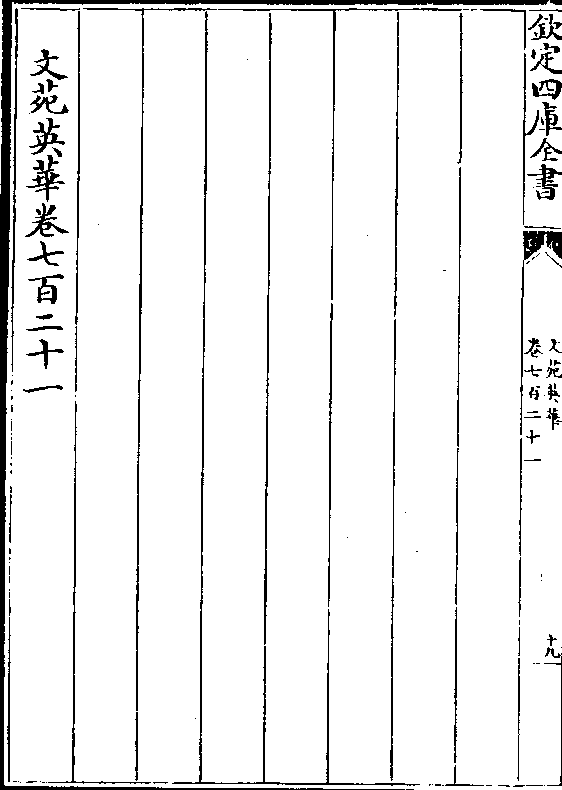 欽定四庫全書
文苑英華
卷七百二十一
十九
文苑英華卷七百二十一